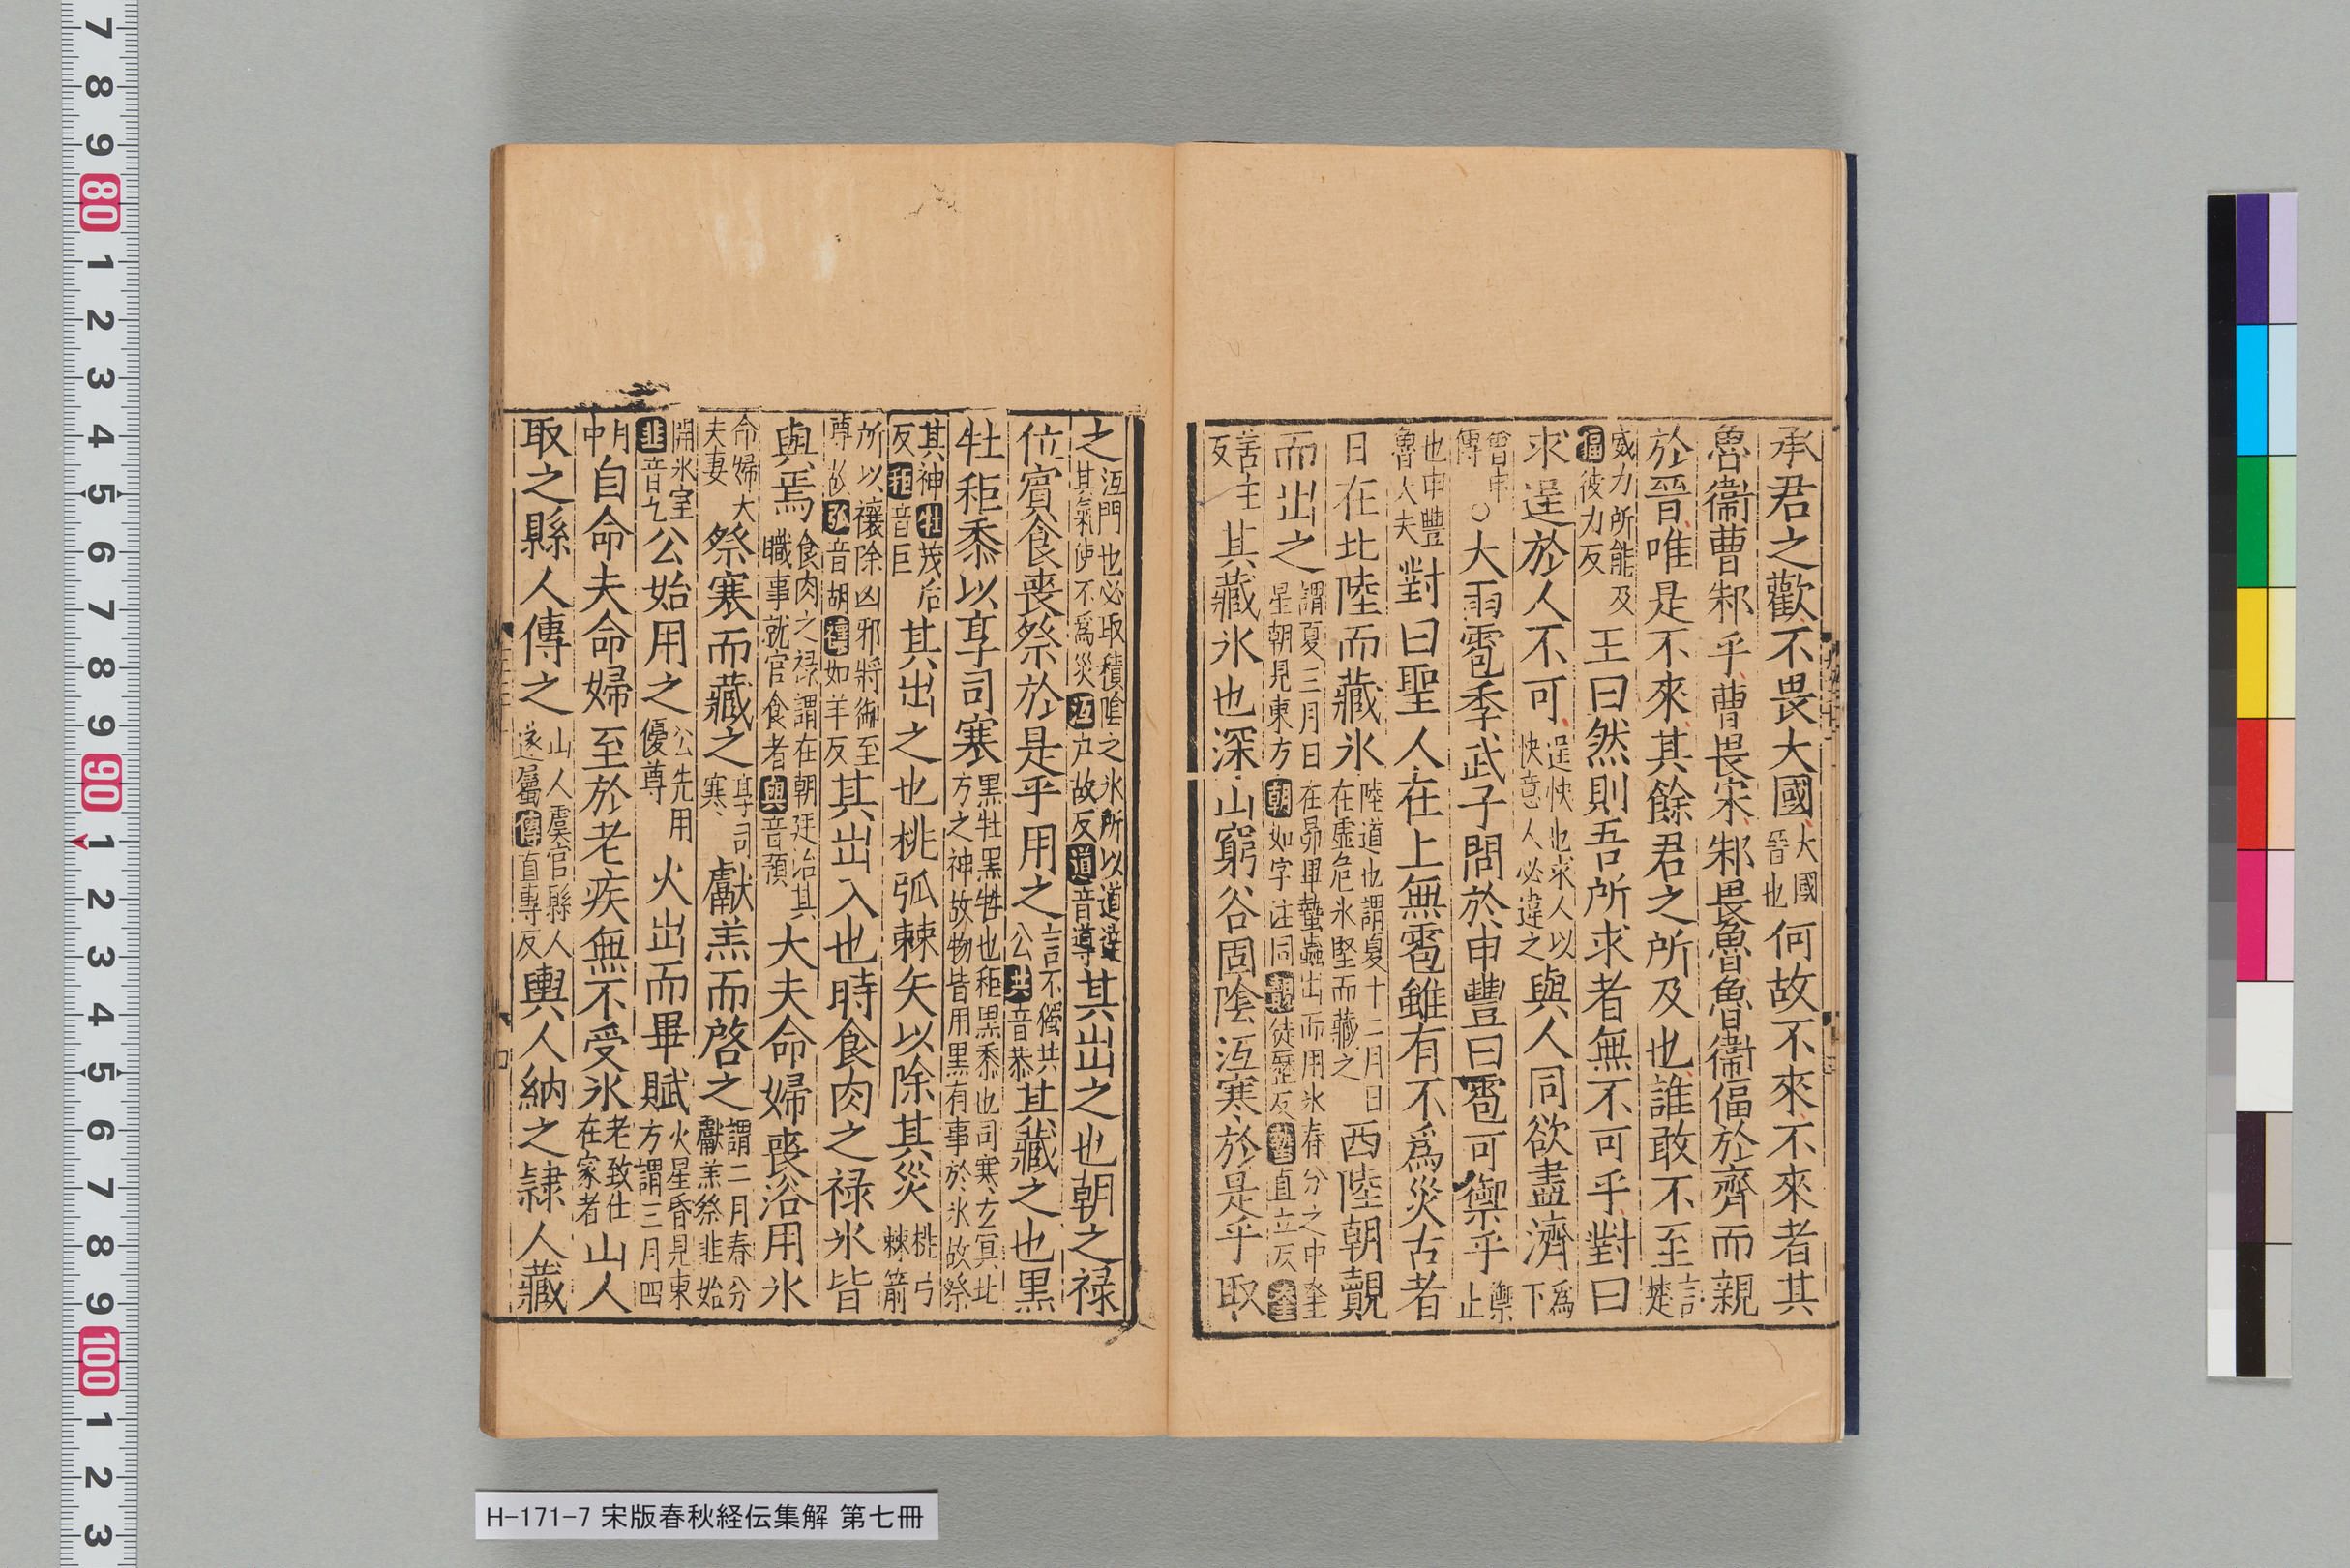 承君之歡不畏大國大國晉也何故不來不來者其
魯衞曹邾乎曹畏宋邾畏魯魯衞偪於齊而親
於晉唯是不來其餘君之所及也誰敢不至言楚
威力所能及偪彼力反王曰然則吾所求者無不可乎對曰
求逞於人不可逞快也求人以快意人必違之與人同欲盡濟爲下
會申傳○大雨雹季武子問於申豐曰雹可禦乎禦止
也申豐魯大夫對曰聖人在上無雹雖有不爲災古者
日在北陸而藏冰陸道也謂夏十二月日在虛危冰堅而藏之西陸朝覿
而出之謂夏三月日在昴畢蟄蟲出而用冰春分之中奎星朝見東方朝如字注同覿徒歷反蟄直立反奎
苦圭反其藏冰也深山窮谷固陰沍寒於是乎取
之沍閉也必取積陰之冰所以道達其氣使不爲災沍戶故反道音導其出之也朝之禄
位賓食喪祭於是乎用之言不獨共公共音恭其藏之也黑
牡秬黍以享司寒黑牡黑牲也秬黑黍也司寒玄冥北方之神故物皆用黑有事於冰故祭
其神牡茂后反秬音巨其出之也桃弧棘矢以除其災桃弓棘箭
所以禳除凶邪將御至尊故弧音胡禳如羊反其出入也時食肉之禄冰皆
與焉食肉之禄謂在朝廷治其職事就官食者與音預大夫命婦喪浴用冰
命婦大夫妻祭寒而藏之享司寒獻羔而啓之謂二月春分獻羔祭韭始
開冰室韭音九公始用之公先用優尊火出而畢賦火星昏見東方謂三月四
月中自命夫命婦至於老疾無不受冰老致仕在家者山人
取之縣人傳之山人虞官縣人遂屬傳直專反輿人納之隷人藏
H-171-7 宋版春秋経伝集解 第七冊
7 8 9 80 1 2 3 4 5 6 7 8 9 90 1 2 3 4 5 6 7 8 9 100 1 2 3